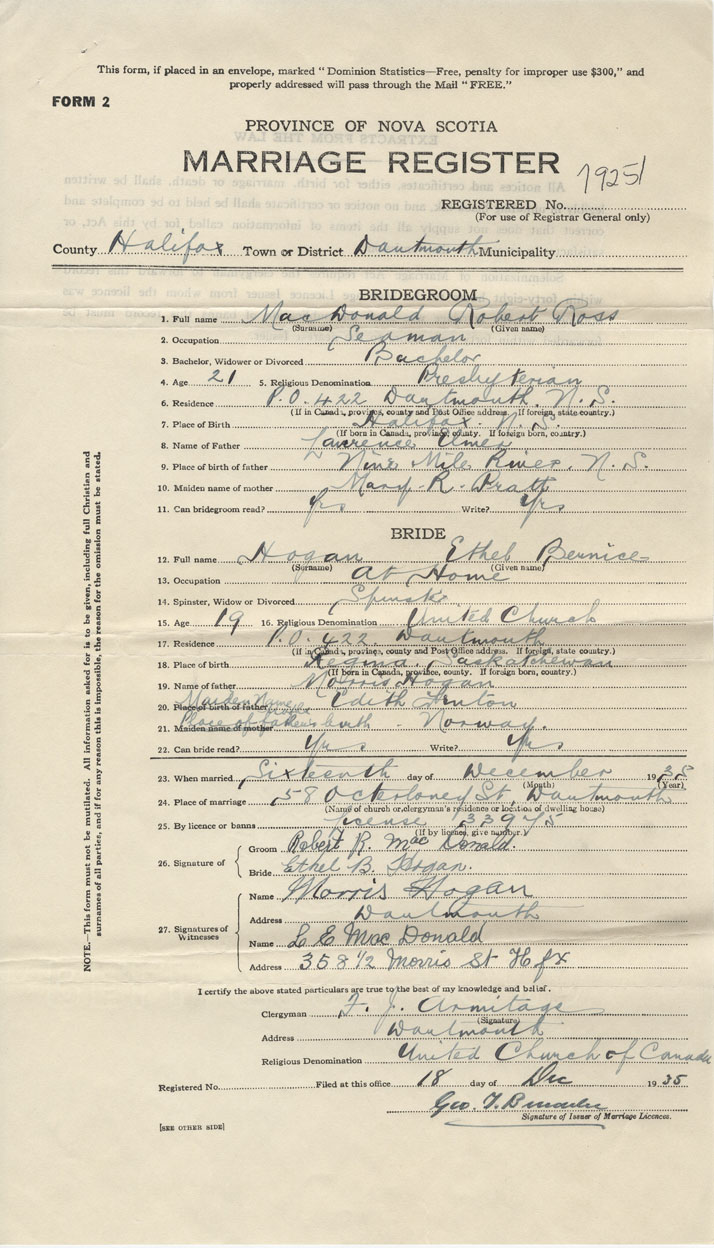 This form, if placed in an envelope, marked "Dominion Statistics—Free, penalty for improper use $300," and
properly addressed will pass through the Mail "FREE."
FORM 2
PROVINCE OF NOVA SCOTIA
MARRIAGE REGISTER
REGISTERED No.
(For use of Registrar General only)
County Halifax Town or District Dartmouth Municipality
BRIDEGROOM
1. Full name MacDonald Robert Ross
(Surname) (Given name)
2. Occupation Seaman
3. Bachelor, Widower or Divorced Bachelor
4. Age 21 5. Religious Denomination Presbyterian
6. Residence P.O. 422 Dartmouth, N.S.
(If in Canada, province, county and Post Office address. If foreign, state country.)
7. Place of Birth Halifax. N.S.
(If born in Canada, province, county. If foreign born, country.)
8. Name of Father Lawrence Elmer
9. Place of birth of father Nine Mile River, N.S.
10. Maiden name of mother Mary R. Pratt
11. Can bridegroom read? Yes Write? Yes
BRIDE
12. Full name Hogan Ethel Bernice
(Surname) (Given name)
13. Occupation At Home
14. Spinster, Widow or Divorced Spinster
15. Age 19 16. Religious Denomination United Church
17. Residence P.O. 422 Dartmouth
(If in Canada, province, county and Post Office address. If foreign, state country.)
18. Place of birth Regina, Saskatchewan
(If born in Canada, province, county. If foreign born, country.)
19. Name of father Morris Hogan
20. Place of birth of father Maiden Name Edith Fenton
21. Maiden name of mother Place of father's birth - Norway.
22. Can bride read? Yes Write? Yes
23. When married Sixteenth day of December 1935
(Month) (Year)
24. Place of marriage 58 Octerloney St, Dartmouth
(Name of church or clergyman's residence or location of dwelling house)
25. By licence or banns License 33975
(If by licence, give number.)
26. Signature of
Groom Robert R. MacDonald.
Bride Ethel B. Hogan.
27. Signatures of Witnesses
Name Morris Hogan
Address Dartmouth
Name L E MacDonald
Address 358½ Morris St Hfx
I certify the above stated particulars are true to the best of my knowledge and belief.
Clergyman F. J. Armitage
(Signature)
Address Dartmouth
Religious Denomination United Church of Canada
Registered No. Filed at this office 18 day of Dec 1935
Geo. T.
Signature of Issuer of Marriage Licences.
[SEE OTHER SIDE]
NOTE.—This form must not be mutilated. All information asked for is to be given, including full Christian and
surnames of all parties, and if for any reason this is impossible, the reason for the omission must be stated.